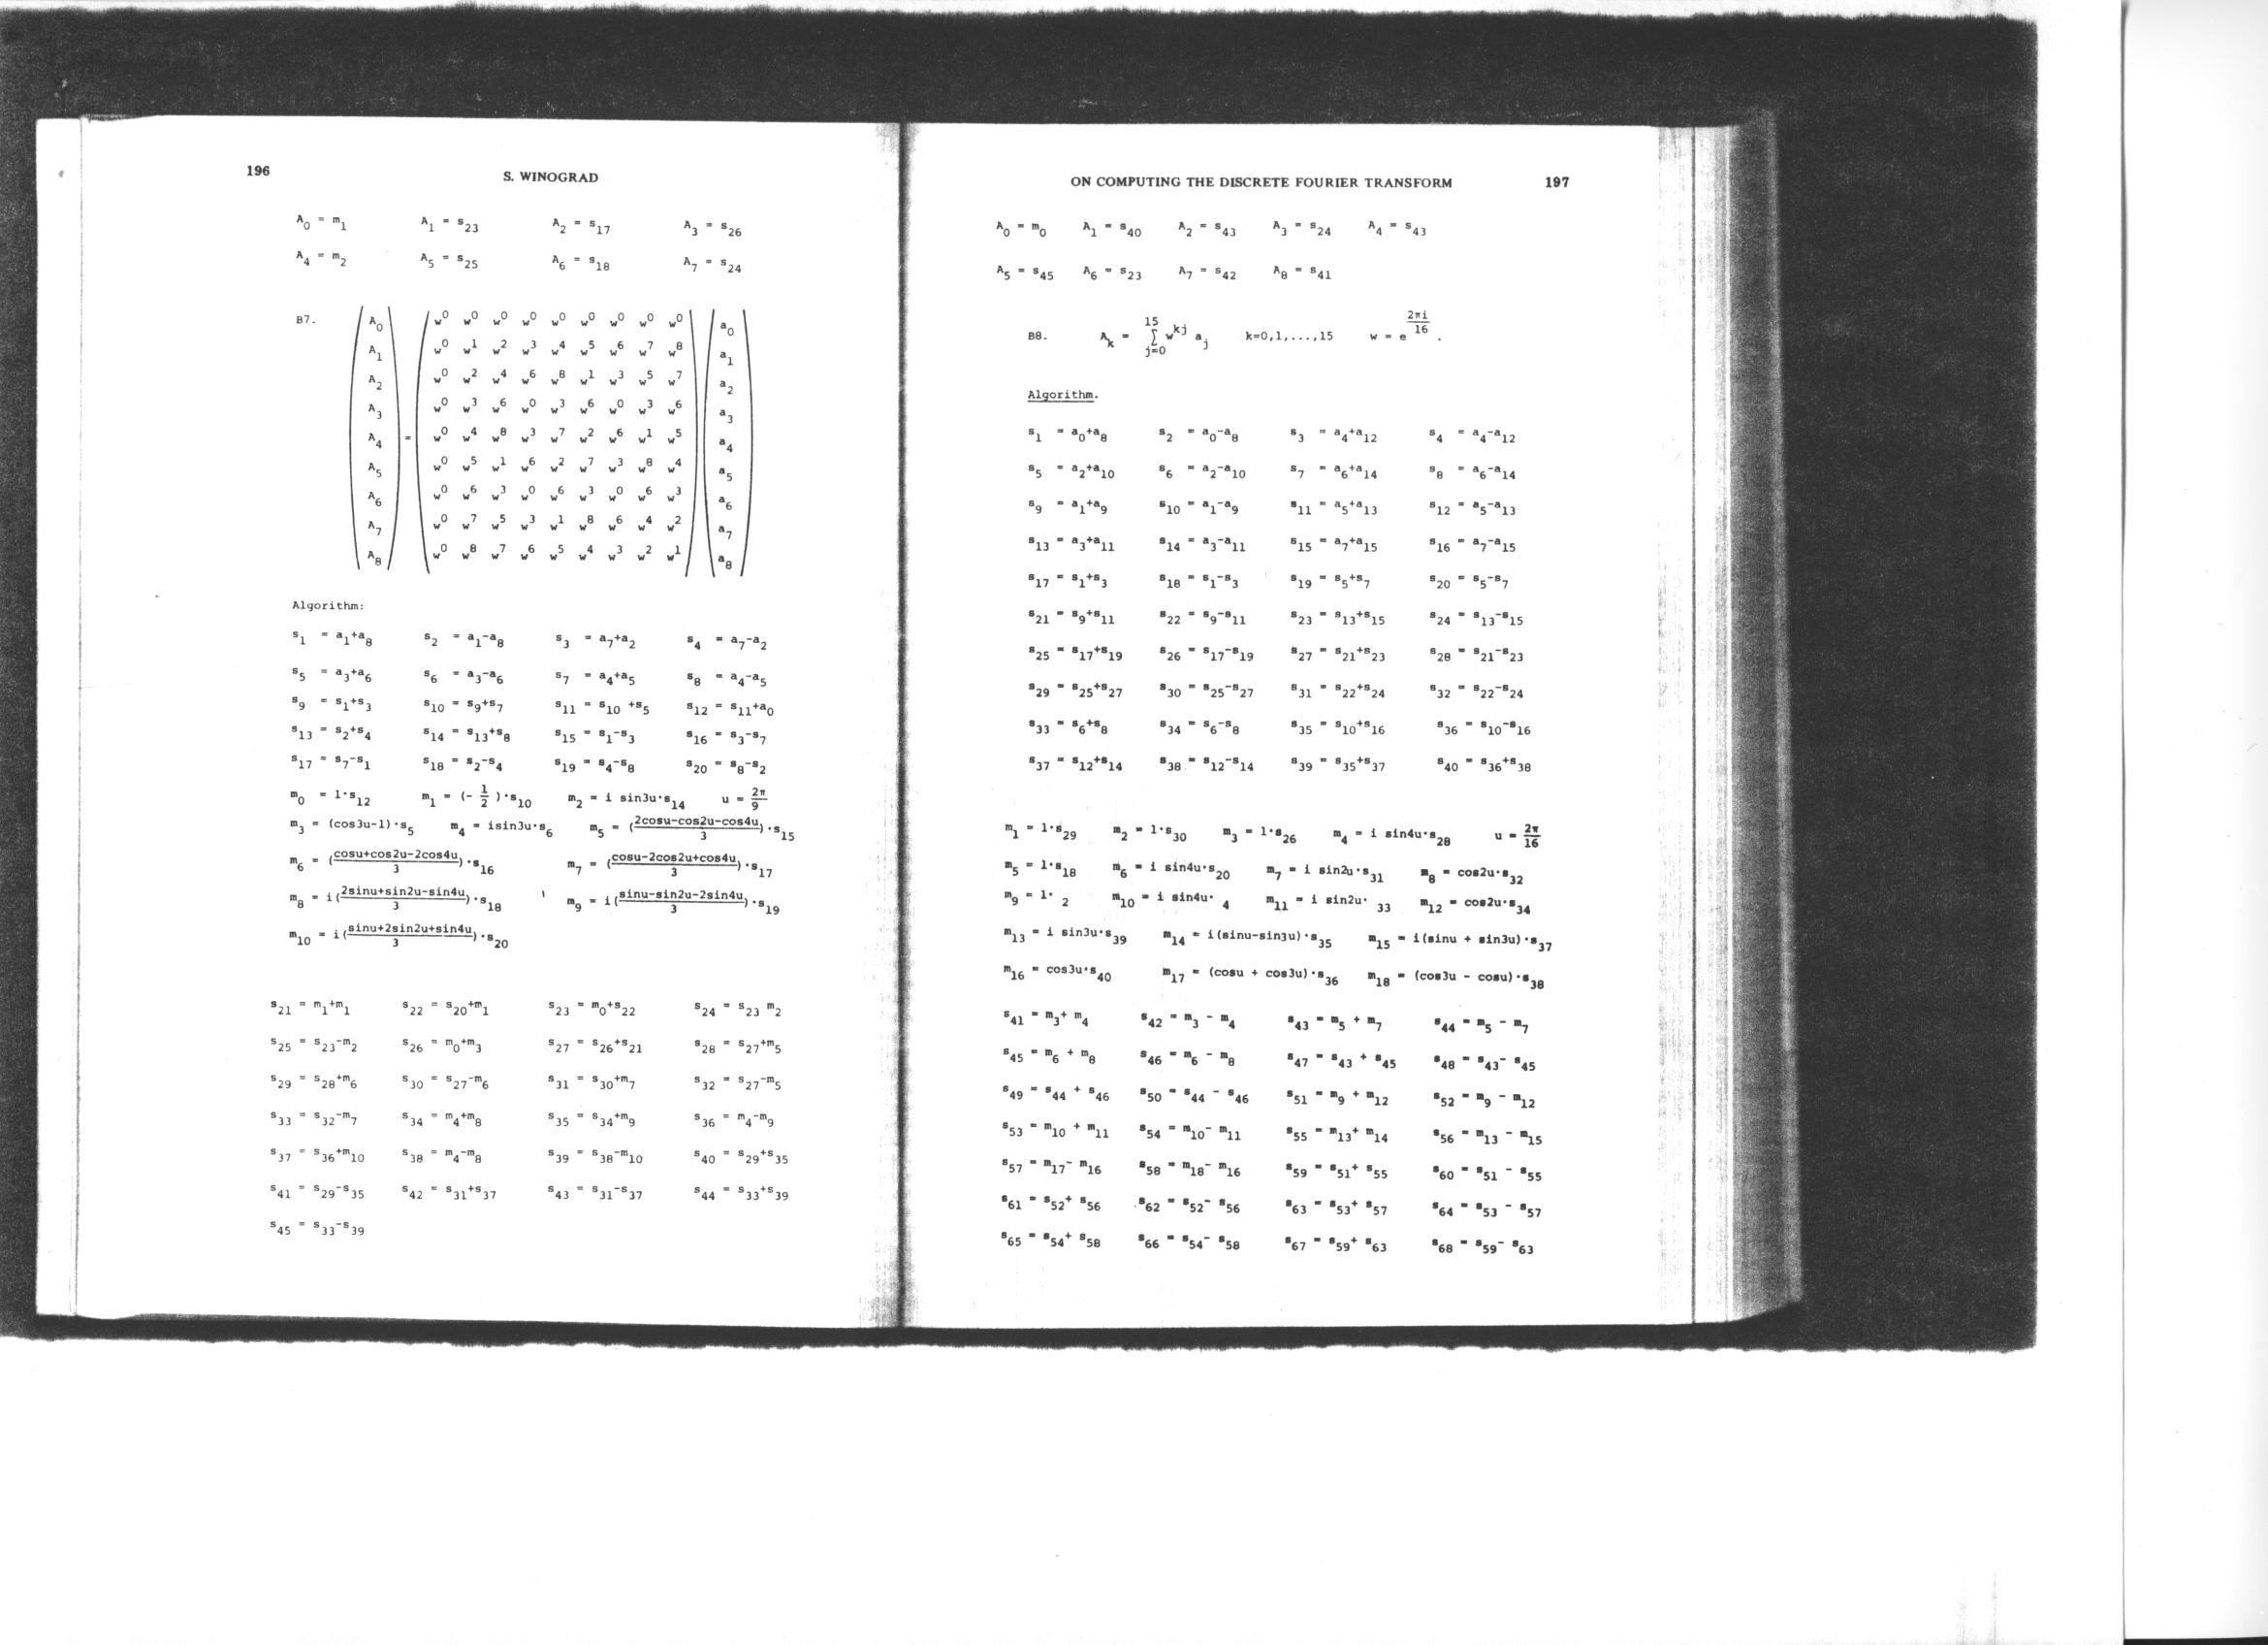 196
S. WINOGRAD
A0 = m1 A1 = s23 A2 = s17 A3 = s26
A4 = m2 A5 = s25 A6 = s18 A7 = s24
B7.
A0 w^0 w^0 w^0 w^0 w^0 w^0 w^0 w^0 w^0 a0
A1 w^0 w^1 w^2 w^3 w^4 w^5 w^6 w^7 w^8 a1
A2 w^0 w^2 w^4 w^6 w^8 w^1 w^3 w^5 w^7 a2
A3 w^0 w^3 w^6 w^0 w^3 w^6 w^0 w^3 w^6 a3
A4 = w^0 w^4 w^8 w^3 w^7 w^2 w^6 w^1 w^5 a4
A5 w^0 w^5 w^1 w^6 w^2 w^7 w^3 w^8 w^4 a5
A6 w^0 w^6 w^3 w^0 w^6 w^3 w^0 w^6 w^3 a6
A7 w^0 w^7 w^5 w^3 w^1 w^8 w^6 w^4 w^2 a7
A8 w^0 w^8 w^7 w^6 w^5 w^4 w^3 w^2 w^1 a8
Algorithm:
s1 = a1+a8 s2 = a1-a8 s3 = a7+a2 s4 = a7-a2
s5 = a3+a6 s6 = a3-a6 s7 = a4+a5 s8 = a4-a5
s9 = s1+s3 s10 = s9+s7 s11 = s10 +s5 s12 = s11+a0
s13 = s2+s4 s14 = s13+s8 s15 = s1-s3 s16 = s3-s7
s17 = s7-s1 s18 = s2-s4 s19 = s4-s8 s20 = s8-s2
m0 = 1·s12 m1 = (-1/2)·s10 m2 = i sin3u·s14 u = 2π/9
m3 = (cos3u-1)·s5 m4 = isin3u·s6 m5 = (2cosu-cos2u-cos4u/3)·s15
m6 = (cosu+cos2u-2cos4u/3)·s16 m7 = (cosu-2cos2u+cos4u/3)·s17
m8 = i(2sinu+sin2u-sin4u/3)·s18 m9 = i(sinu-sin2u-2sin4u/3)·s19
m10 = i(sinu+2sin2u+sin4u/3)·s20
s21 = m1+m1 s22 = s20+m1 s23 = m0+s22 s24 = s23 m2
s25 = s23-m2 s26 = m0+m3 s27 = s26+s21 s28 = s27+m5
s29 = s28+m6 s30 = s27-m6 s31 = s30+m7 s32 = s27-m5
s33 = s32-m7 s34 = m4+m8 s35 = s34+m9 s36 = m4-m9
s37 = s36+m10 s38 = m4-m8 s39 = s38-m10 s40 = s29+s35
s41 = s29-s35 s42 = s31+s37 s43 = s31-s37 s44 = s33+s39
s45 = s33-s39
ON COMPUTING THE DISCRETE FOURIER TRANSFORM 197
A0 = m0 A1 = s40 A2 = s43 A3 = s24 A4 = s43
A5 = s45 A6 = s23 A7 = s42 A8 = s41
B8. Ak = 15 Σ j=0 w^kj aj k=0,1,...,15 w = e^2πi/16 .
Algorithm.
s1 = a0+a8 s2 = a0-a8 s3 = a4+a12 s4 = a4-a12
s5 = a2+a10 s6 = a2-a10 s7 = a6+a14 s8 = a6-a14
s9 = a1+a9 s10 = a1-a9 s11 = a5+a13 s12 = a5-a13
s13 = a3+a11 s14 = a3-a11 s15 = a7+a15 s16 = a7-a15
s17 = s1+s3 s18 = s1-s3 s19 = s5+s7 s20 = s5-s7
s21 = s9+s11 s22 = s9-s11 s23 = s13+s15 s24 = s13-s15
s25 = s17+s19 s26 = s17-s19 s27 = s21+s23 s28 = s21-s23
s29 = s25+s27 s30 = s25-s27 s31 = s22+s24 s32 = s22-s24
s33 = s6+s8 s34 = s6-s8 s35 = s10+s16 s36 = s10-s16
s37 = s12+s14 s38 = s12-s14 s39 = s35+s37 s40 = s36+s38
m1 = 1·s29 m2 = 1·s30 m3 = 1·s26 m4 = i sin4u·s28 u = 2π/16
m5 = 1·s18 m6 = i sin4u·s20 m7 = i sin2u·s31 m8 = cos2u·s32
m9 = 1· 2 m10 = i sin4u· 4 m11 = i sin2u· 33 m12 = cos2u·s34
m13 = i sin3u·s39 m14 = i(sinu-sin3u)·s35 m15 = i(sinu + sin3u)·s37
m16 = cos3u·s40 m17 = (cosu + cos3u)·s36 m18 = (cos3u - cosu)·s38
s41 = m3+ m4 s42 = m3 - m4 s43 = m5 + m7 s44 = m5 - m7
s45 = m6 + m8 s46 = m6 - m8 s47 = s43 + s45 s48 = s43- s45
s49 = s44 + s46 s50 = s44 - s46 s51 = m9 + m12 s52 = m9 - m12
s53 = m10 + m11 s54 = m10- m11 s55 = m13+ m14 s56 = m13 - m15
s57 = m17- m16 s58 = m18- m16 s59 = s51+ s55 s60 = s51 - s55
s61 = s52+ s56 s62 = s52- s56 s63 = s53+ s57 s64 = s53 - s57
s65 = s54+ s58 s66 = s54- s58 s67 = s59+ s63 s68 = s59- s63